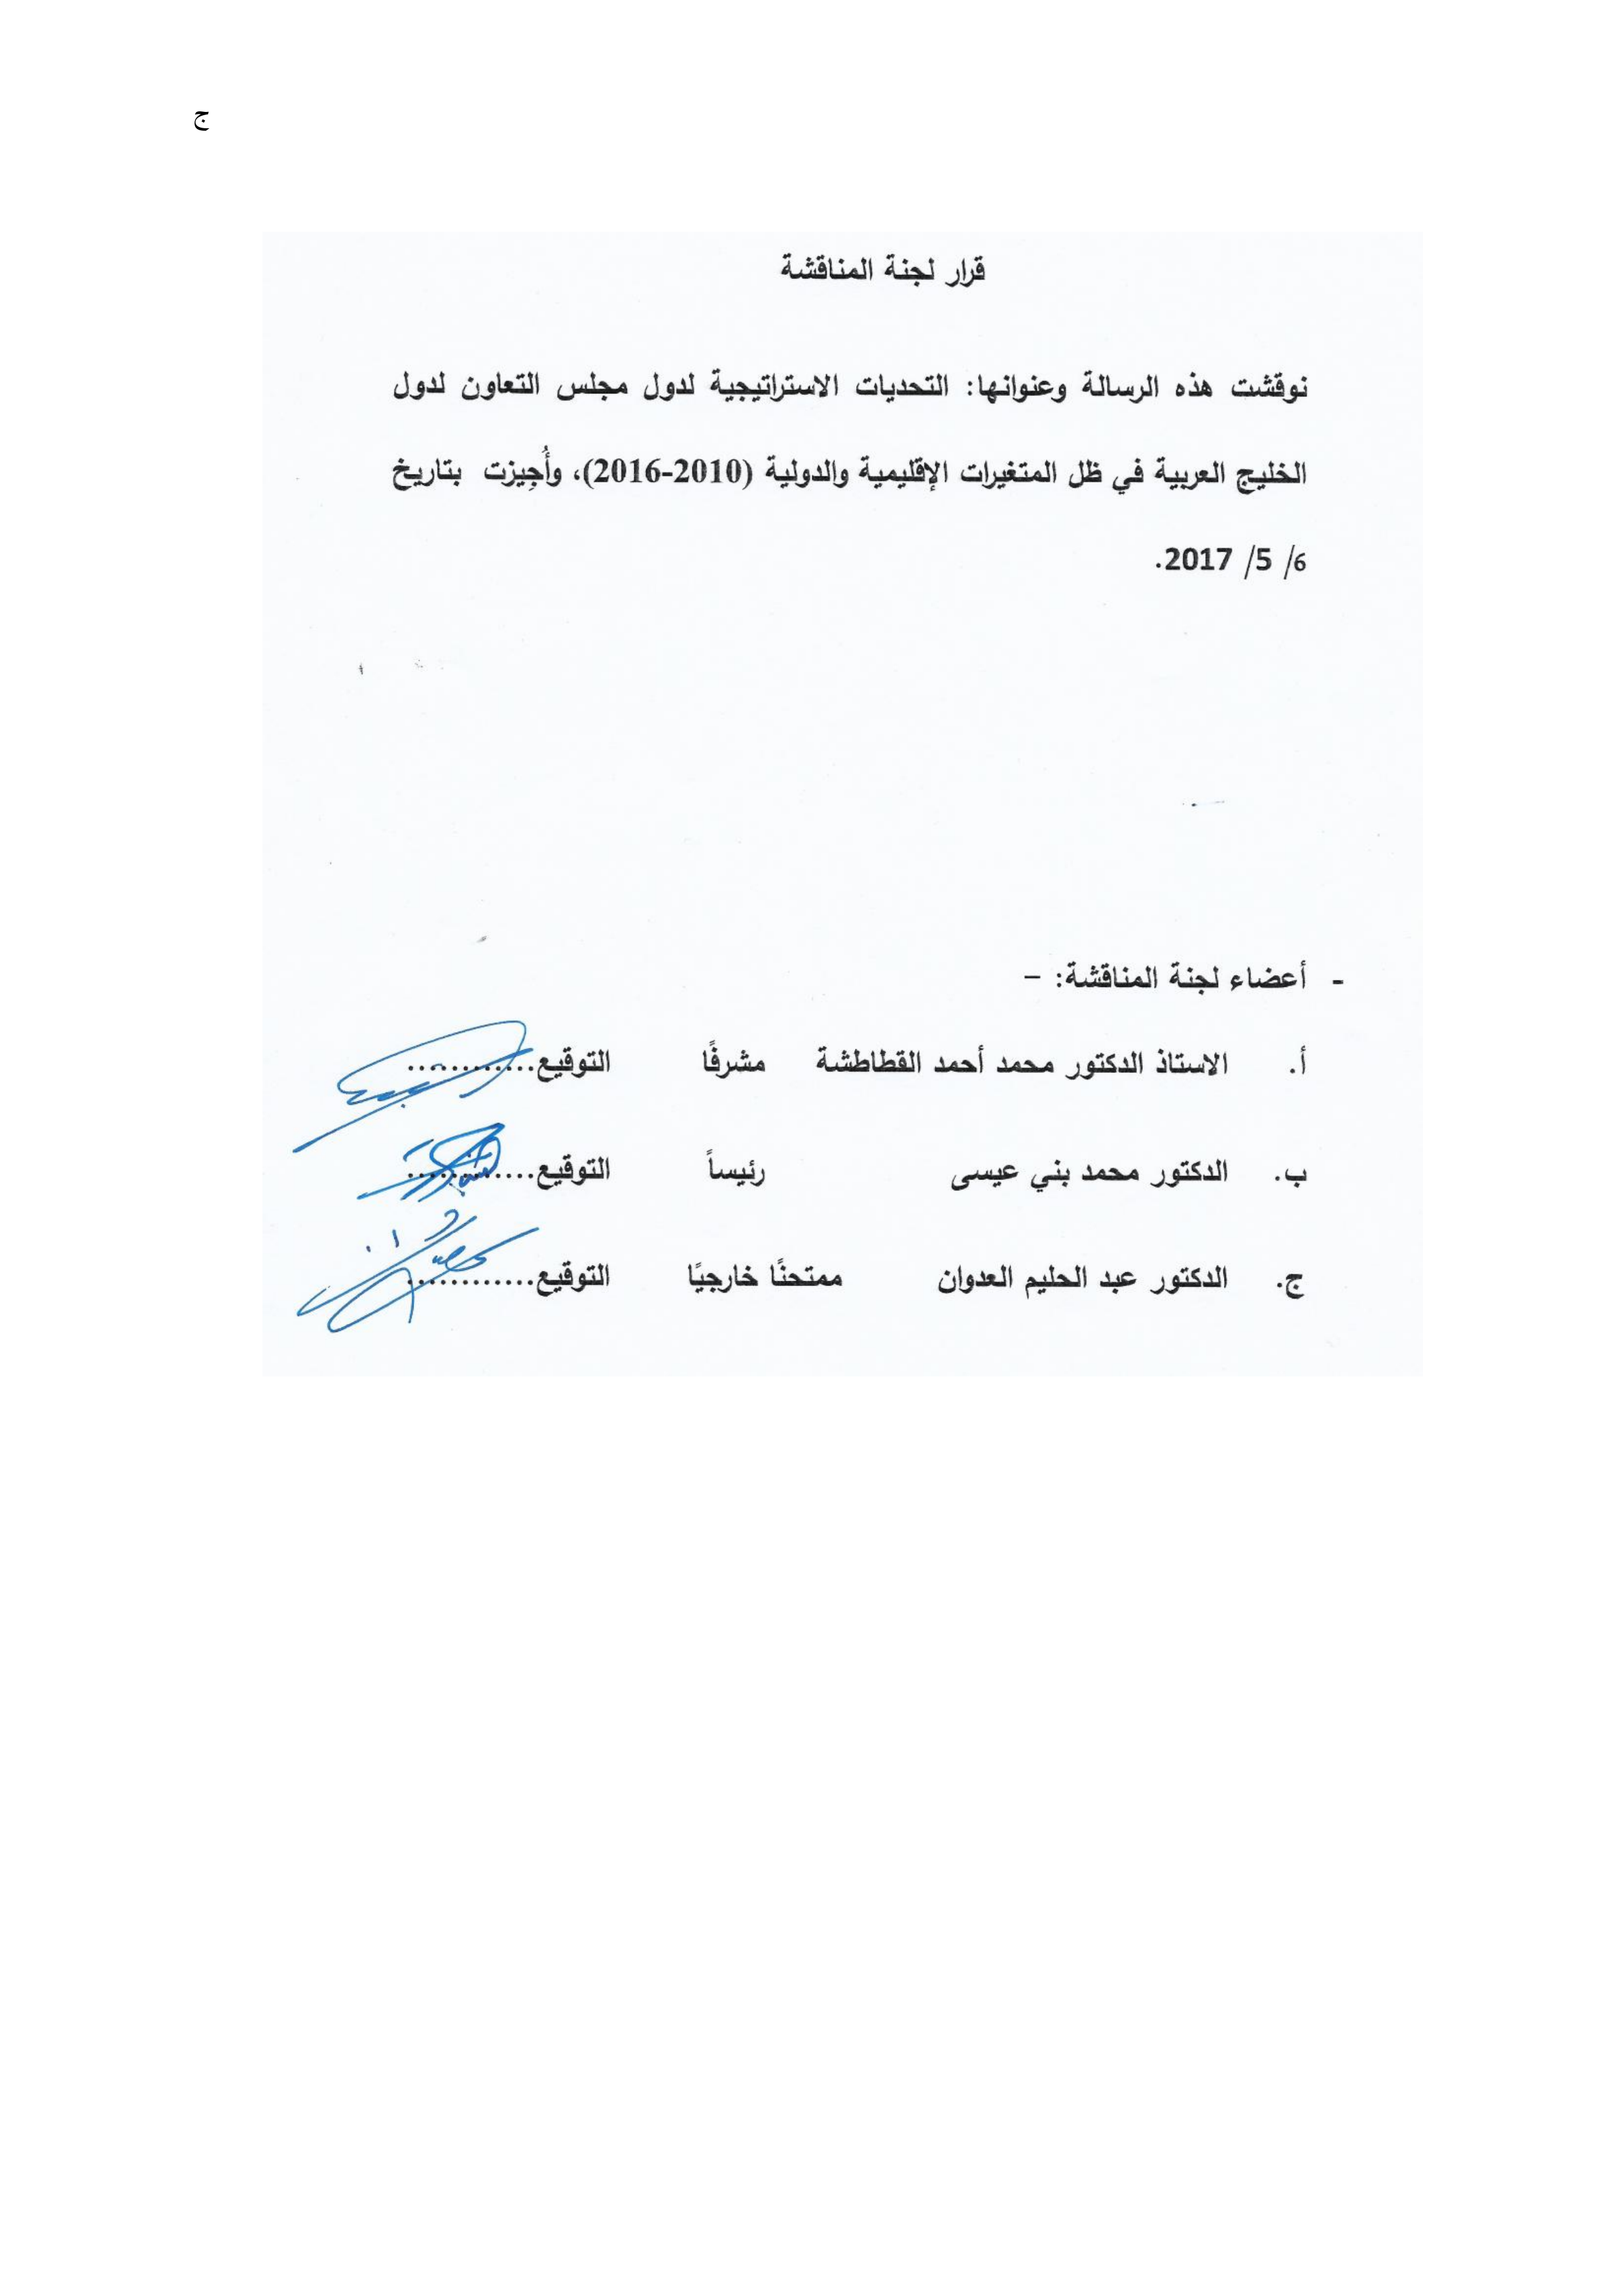 ج
قرار لجنة المناقشة
نوقشت هذه الرسالة وعنوانها: التحديات الاستراتيجية لدول مجلس التعاون لدول
الخليج العربية في ظل المتغيرات الإقليمية والدولية (2010-2016)، وأُجِيزت بتاريخ
6/ 5/ 2017.
- أعضاء لجنة المناقشة: –
أ. الاستاذ الدكتور محمد أحمد القطاطشة مشرفًا التوقيع............
ب. الدكتور محمد بني عيسى رئيساً التوقيع............
ج. الدكتور عبد الحليم العدوان ممتحنًا خارجيًا التوقيع............